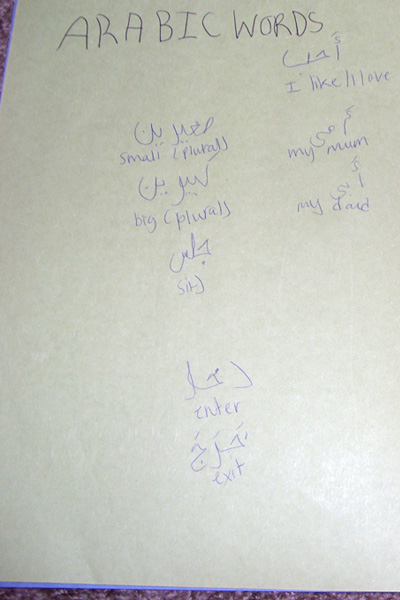 ARABIC WORDS
أُحب
I like/I love
صغيرين
small (plural)
أُمي
my mum
كبيرين
big (plural)
أَبي
my dad
جلس
sit
دخل
enter
خَرَجَ
exit